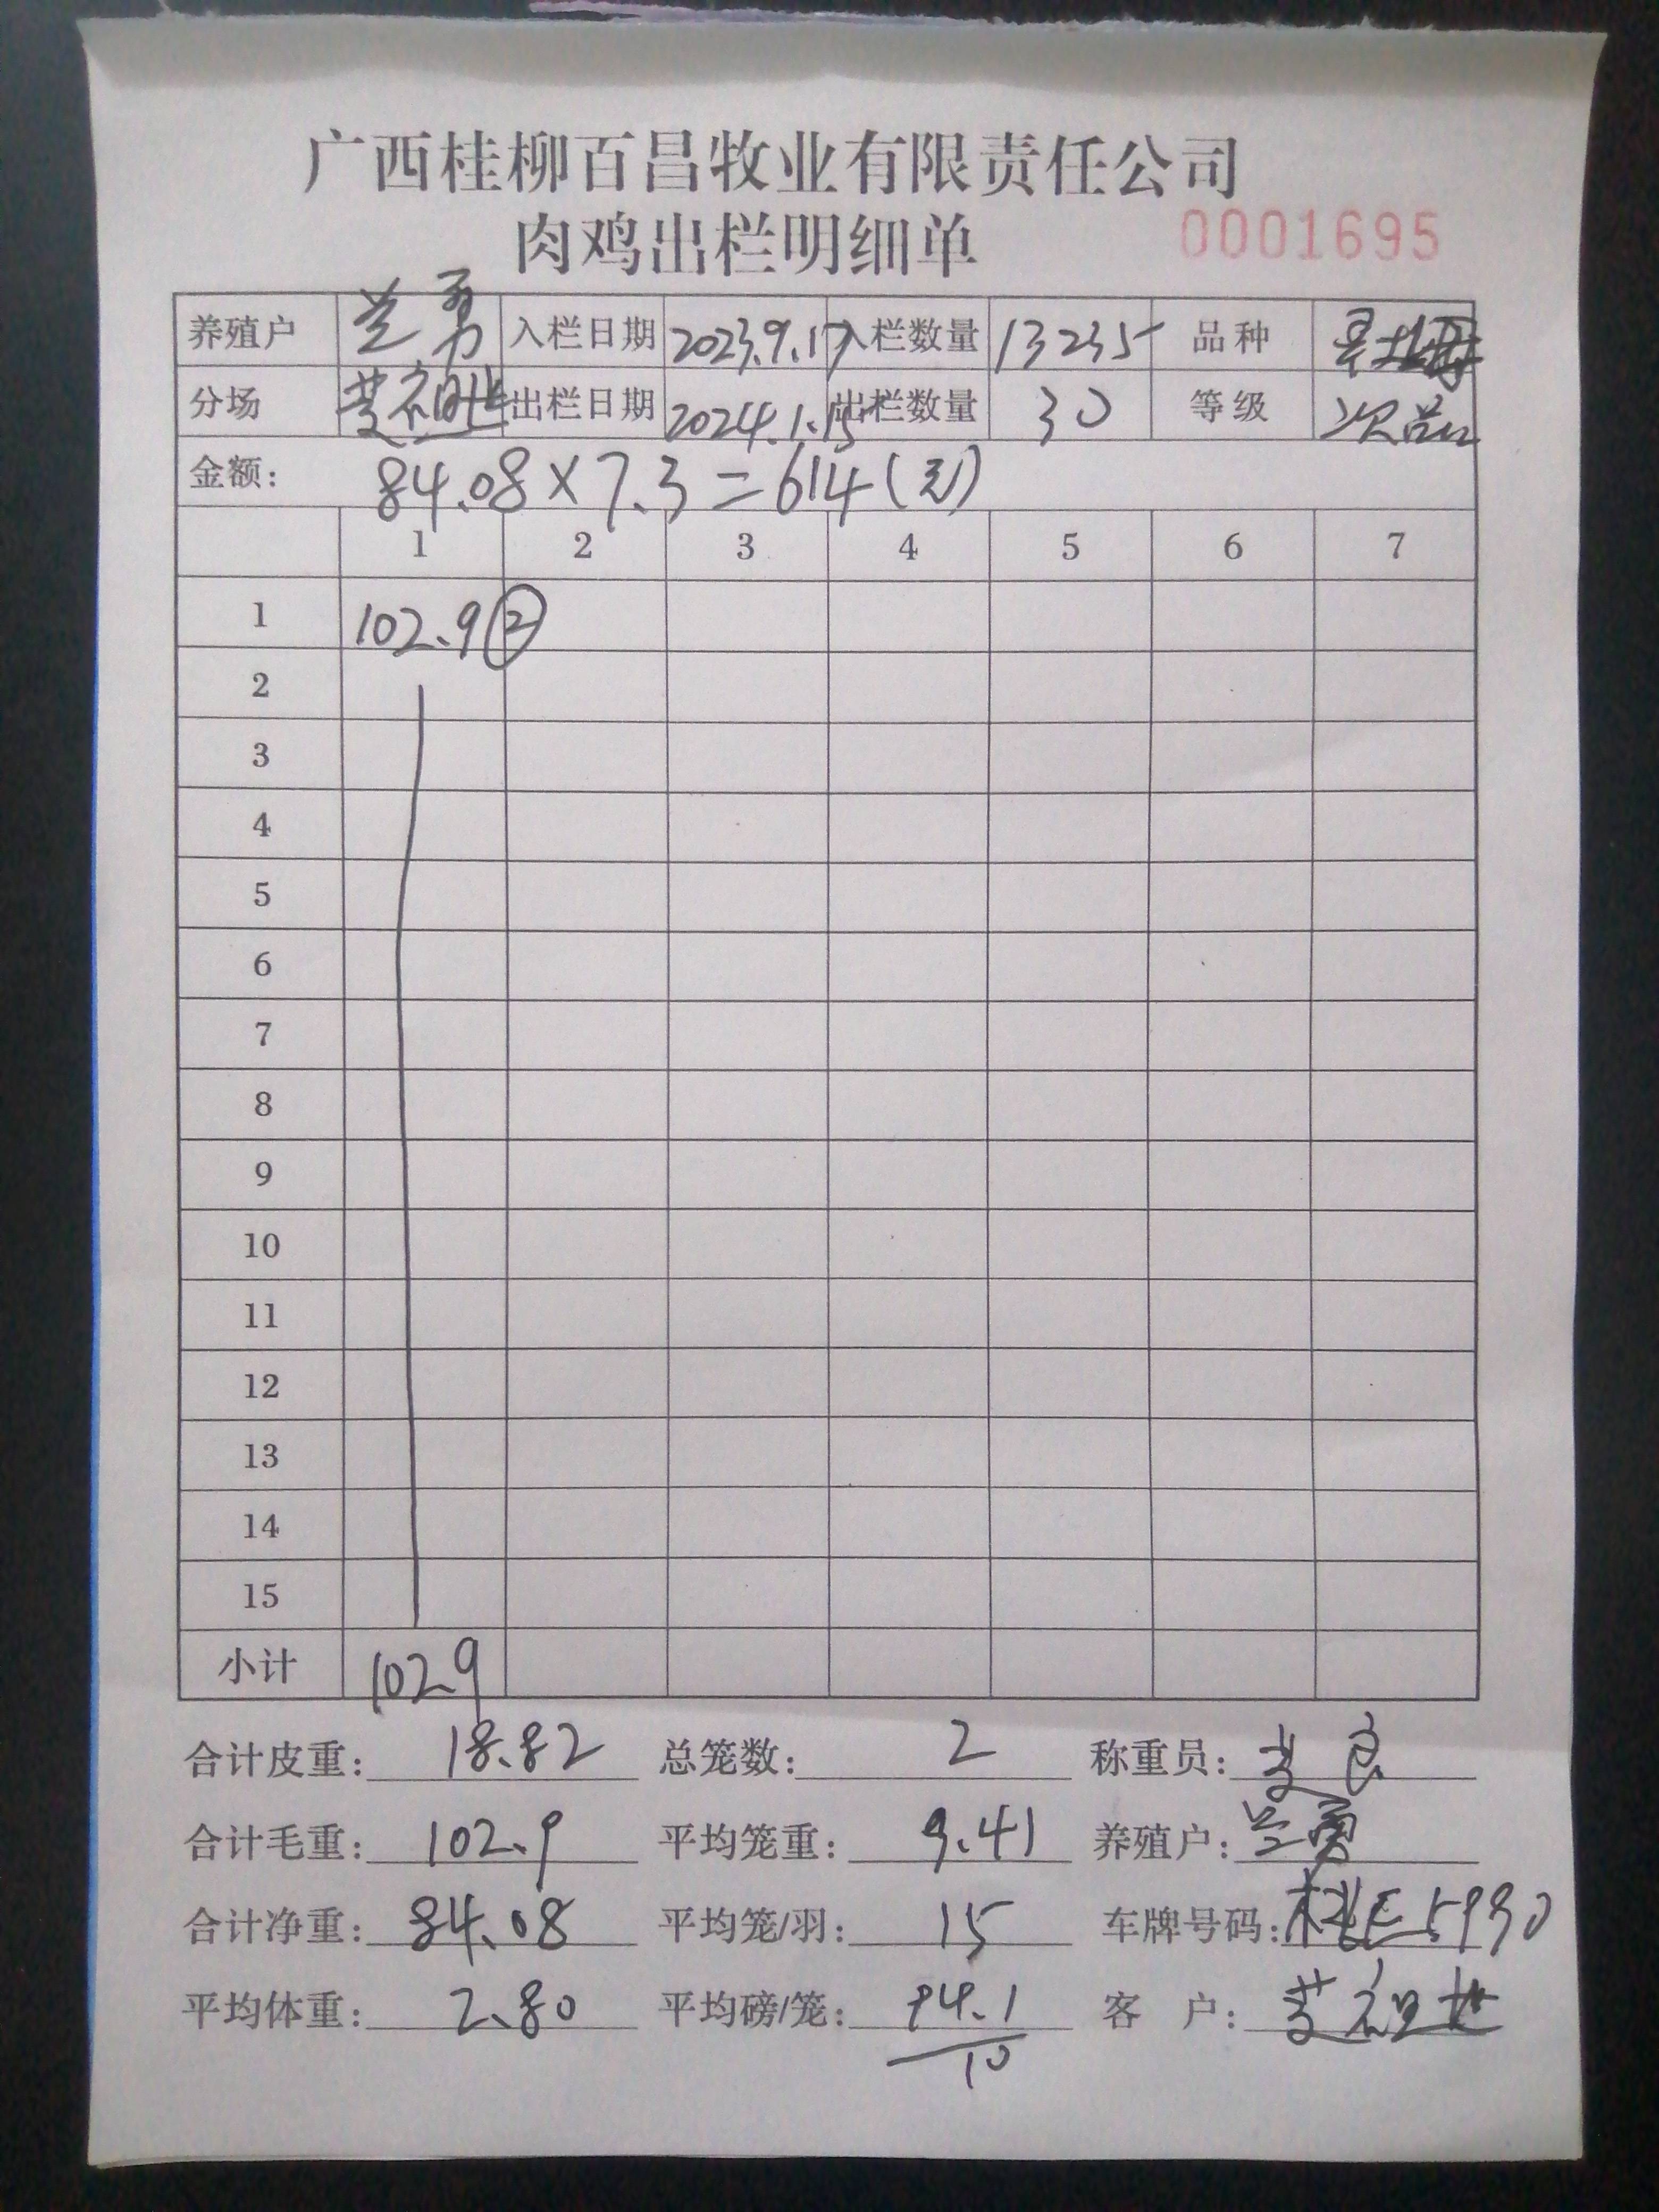 广西桂柳百昌牧业有限责任公司
肉鸡出栏明细单 0001695
养殖户 兰勇 入栏日期 2023.9.17 入栏数量 13235 品种
分场 出栏日期 2024.1.15 出栏数量 30 等级 次品
金额: 84.08×7.3=614(元)
1 2 3 4 5 6 7
1 102.9②
2
3
4
5
6
7
8
9
10
11
12
13
14
15
小计 102.9
合计皮重: 18.82 总笼数: 2 称重员:
合计毛重: 102.9 平均笼重: 9.41 养殖户: 兰勇
合计净重: 84.08 平均笼/羽: 15 车牌号码:
平均体重: 2.80 平均磅/笼: 94.1/10 客户: